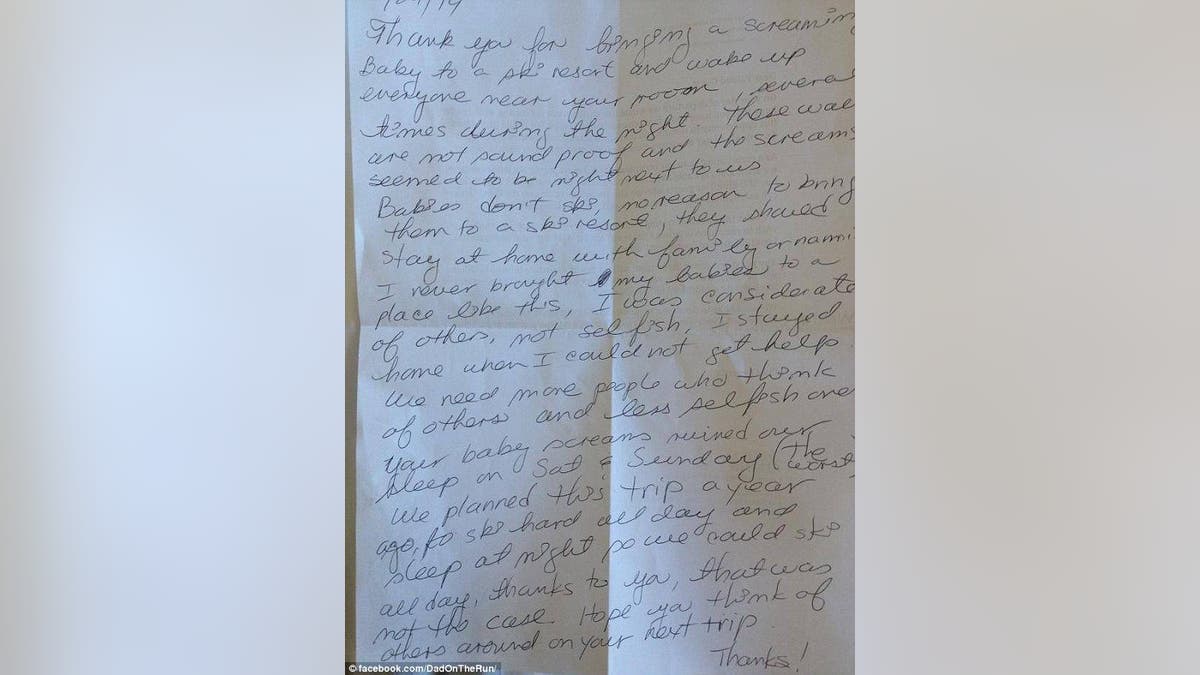 Thank ya for bringing a screaming
Baby to a ski resort and wake up
everyone near your room, several
times during the night. These wal
are not sound proof and the screams
seemed to be right next to us
Babies don't ski, no reason to bring
them to a ski resort, they should
stay at home with family or nanni
I never brought my babies to a
place like this, I was considerate
of others, not selfish, I stayed
home when I could not get help
We need more people who think
of others and less selfish one
your baby screams ruined our
sleep on Sat & Sunday (the worst)
We planned this trip a year
ago, to ski hard all day and
sleep at night so we could ski
all day, thanks to ya, that was
not the case. Hope ya think of
others around on your next trip.
Thanks!
© facebook.com/DadOnTheRun/